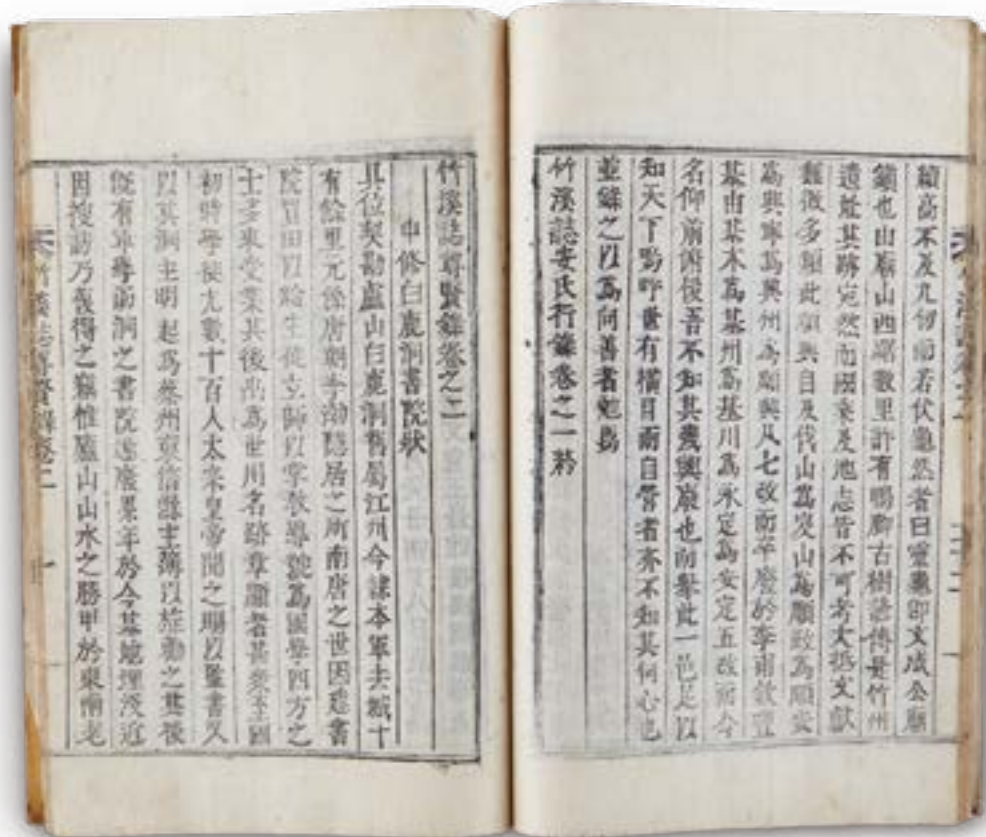 高不及九仞而若伏龜然者曰靈龜即文成公廟
鎭也山廟山西踞數里許有鴨脚古樹諺傳是竹州
遺墟其跡宛然而國乘及地志皆不可考大抵文獻
難徵多類此順興自及伐山爲岌山爲順政爲順安
爲興寧爲興州爲順興凡七改而卒廢於李甫欽豊
基由基木爲基州爲基川爲永定爲安定五改而今
名仰前俯後吾不知其幾興廢也而擧此一邑足以
知天下世有橫目而自營者亦不知其何心也
並錄之以爲向善者勉焉
竹溪誌安氏行錄卷之一終
竹溪誌尊賢錄卷之二
申修白鹿洞書院狀
具位契勘廬山白鹿洞舊屬江州今隷本軍去城十
有餘里元係唐朝李渤隱居之所南唐之世因建書
院買田以給生徒立師以掌敎導號爲國學四方之
士多來受業其後出爲世用名跡章顯者甚衆至國
初時學徒尤數十百人太宗皇帝聞之賜以監書又
以其洞主明起爲蔡州褒信縣主簿以旌勸之其後
旣有軍學而洞之書院遂廢累年於今基地埋沒近
因搜訪乃復得之竊惟廬山山水之勝甲於東南老
竹溪誌尊賢錄卷二